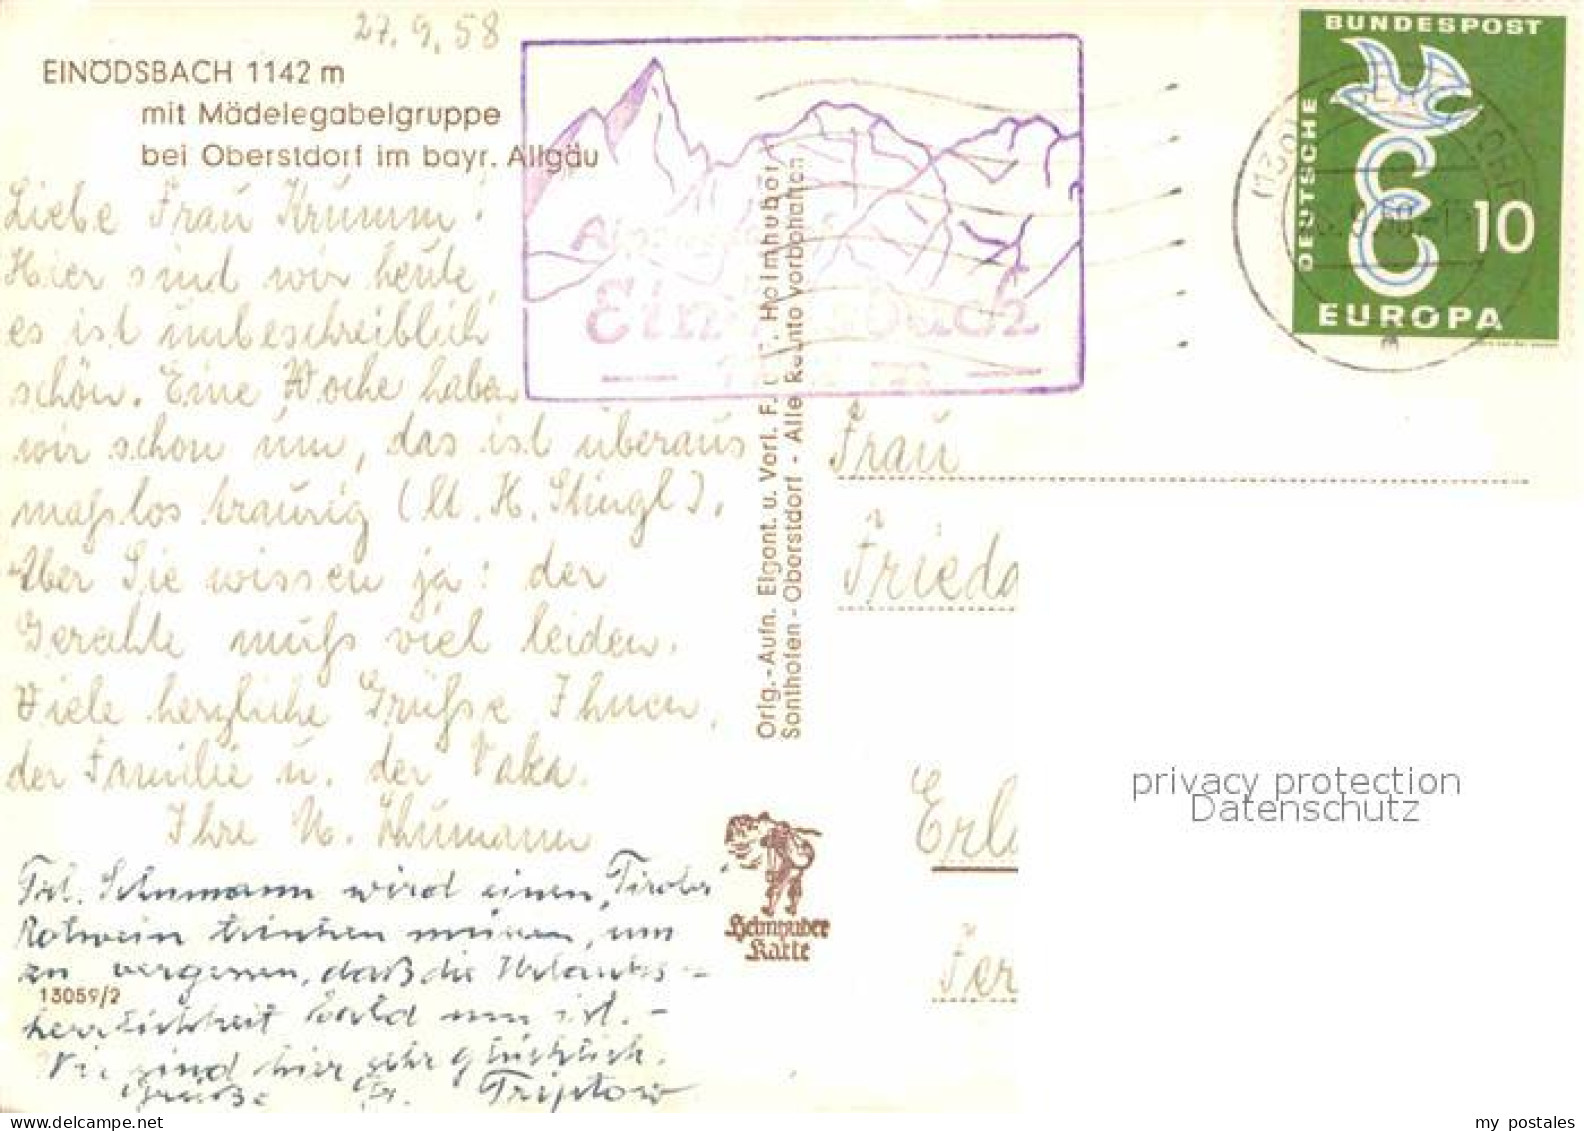 27.9.58
EINÖDSBACH 1142 m
mit Mädelegabelgruppe
bei Oberstdorf im bayr. Allgäu
Liebe Frau Krumm!
Hier sind wir heute,
es ist unbeschreiblich
schön. Eine Woche haben
wir schon um, das ist überaus
maßlos traurig (lt. H. Stingl).
Aber Sie wissen ja: der
Gerechte muß viel leiden.
Viele herzliche Grüße Ihnen,
der Familie u. der
Ihre Schumann
Frl. Schumann wird einen "Tiroler"
Rotwein trinken müssen, um
zu vergessen, daß die Urlaubs-
herrlichkeit bald um ist. -
Wir sind hier sehr glücklich.
Grüße Fr. Triptow
13059/2
Orig.-Aufn. Eigent. u. Verl. F. Heimhuber
Sonthofen - Oberstdorf - Alle Rechte vorbehalten
Einödsbach
BUNDESPOST
DEUTSCHE
10
EUROPA
Frau
Frieda
Erl
Ter
Heimhuber
Karte
privacy protection
Datenschutz
my postales